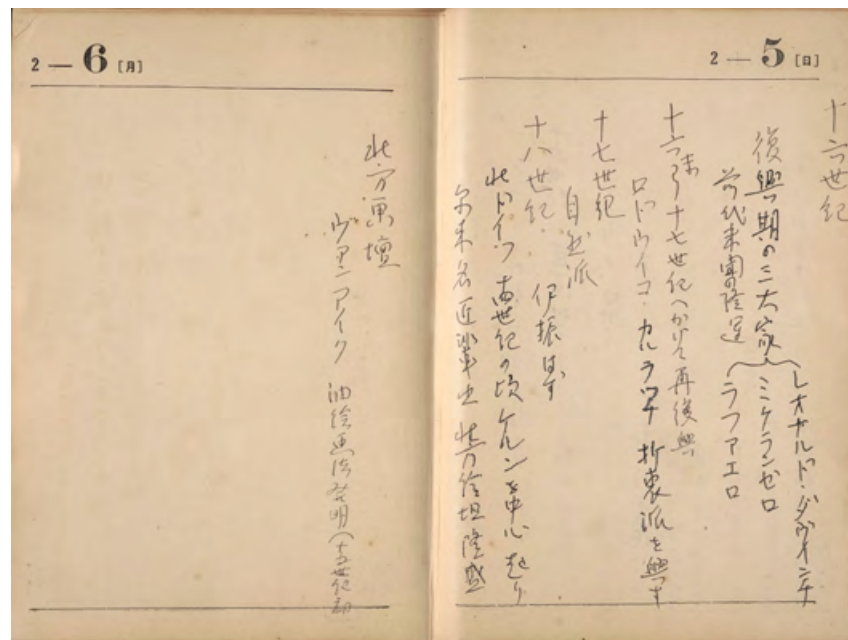 2—5［日］
十六世紀
レオナルド・ダヴィンチ
復興期の三大家 ミケランゼロ
ラファエロ
前代未聞の隆運
十六末より十七世紀へかけて再復興
ロドヴイコ・カルラッチ 折衷派を興す
十七世紀
自然派
十八世紀 伊 振はず
北ドイツ 十四世紀の頃 ケルンを中心に起り
尓来名匠輩出 北方絵壇隆盛
2—6［月］
北方画壇
ヴァンアイク 油絵画法発明（十五世紀初